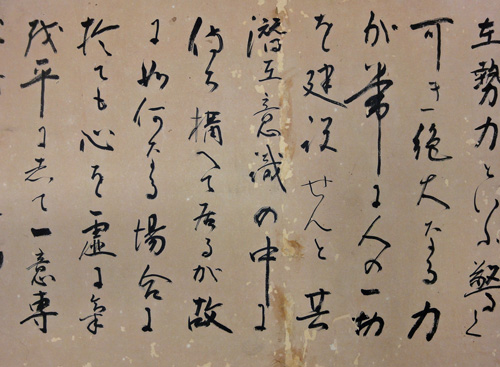 在勢力といふ驚く
可き絶大なる力
が常に人の一切
を建設せんと其
潜在意識の中に
待ち構へて居るが故
に如何なる場合に
於ても心を虚に氣
を平にして一意専